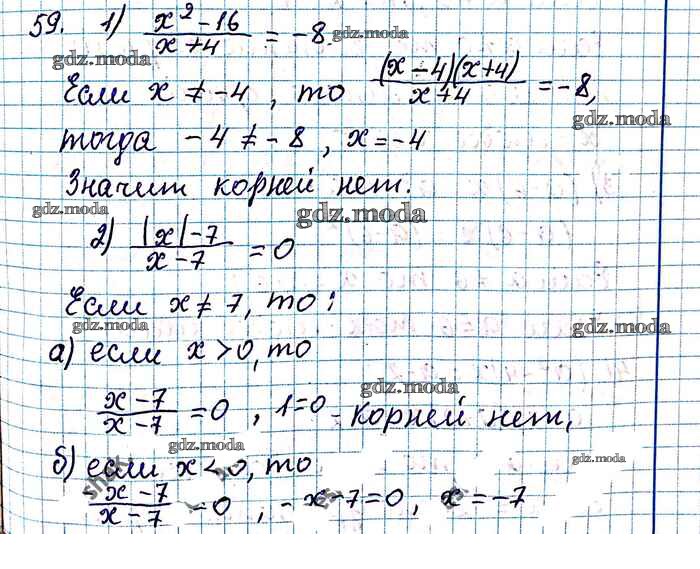 59. 1) (x² - 16)/(x + 4) = -8 gdz.moda
gdz.moda
Если x ≠ -4, то ((x - 4)(x + 4))/(x + 4) = -8,
gdz.moda
тогда -4 ≠ -8, x = -4
Значит корней нет.
gdz.moda
gdz.moda
2) (|x| - 7)/(x - 7) = 0
Если x ≠ 7, то:
gdz.moda
gdz.moda
а) если x > 0, то
gdz.moda
(x - 7)/(x - 7) = 0, 1 = 0 - корней нет,
gdz.moda
б) если x < 0, то
gdz.moda
(x - 7)/(x - 7) = 0, -x - 7 = 0, x = -7